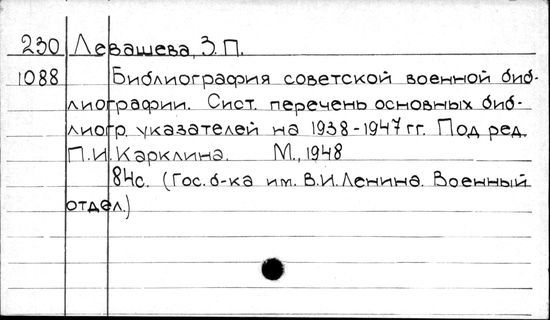 230 Левашева, З.П.
1088 Библиография советской военной биб-
лиографии. Сист. перечень основных биб-
лиогр. указателей на 1938-1947 гг. Под ред.
П.И. Карклина. М., 1948
84с. (Гос. б-ка им. В.И. Ленина. Военный
отдел.)